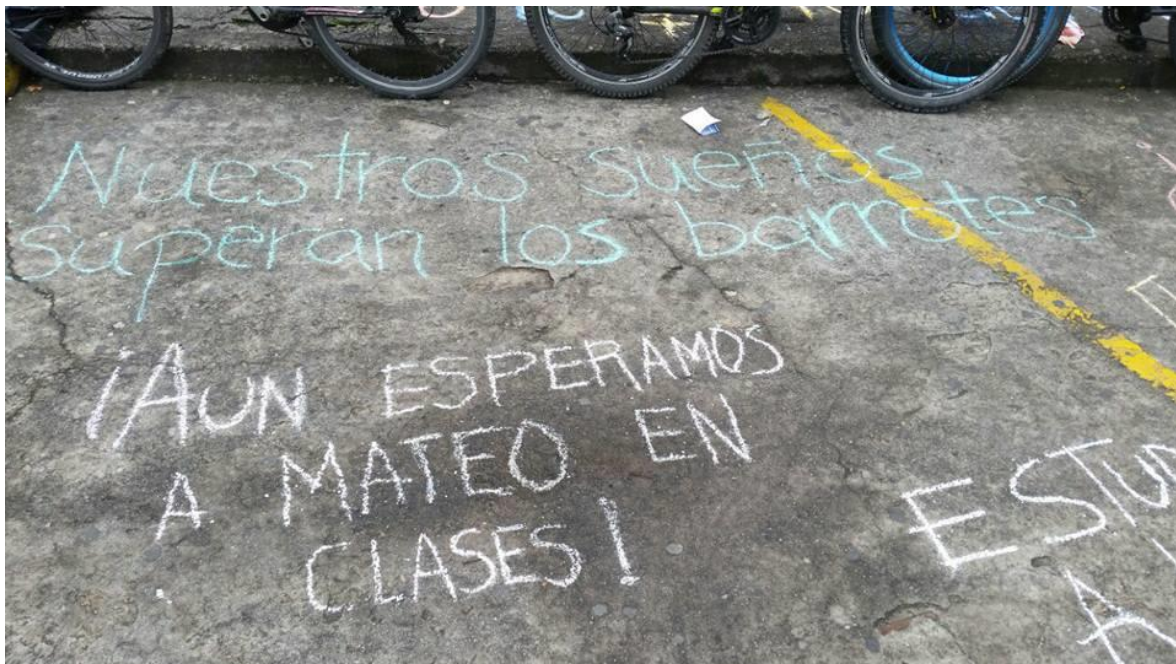 Nuestros sueños
superan los barrotes
¡AUN ESPERAMOS
A MATEO EN
CLASES!
ESTU
A